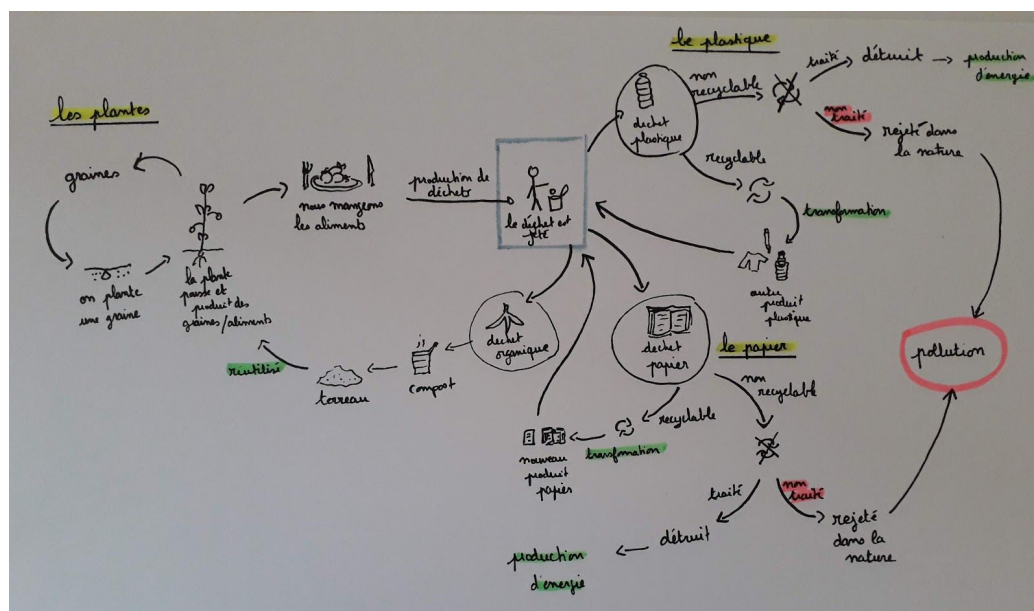 les plantes
graines
on plante
une graine
la plante
pousse et
produit des
graines/aliments
nous mangeons
les aliments
production de
déchets
le déchet est
jeté
dechet
organique
compost
terreau
réutilisé
le plastique
dechet
plastique
non
recyclable
traité
détruit
production
d'énergie
non
traité
rejeté dans
la nature
recyclable
transformation
autre
produit
plastique
le papier
dechet
papier
recyclable
transfmation
nouveau
produit
papier
non
recyclable
traité
détruit
production
d'énergie
non
traité
rejeté
dans la
nature
pollution